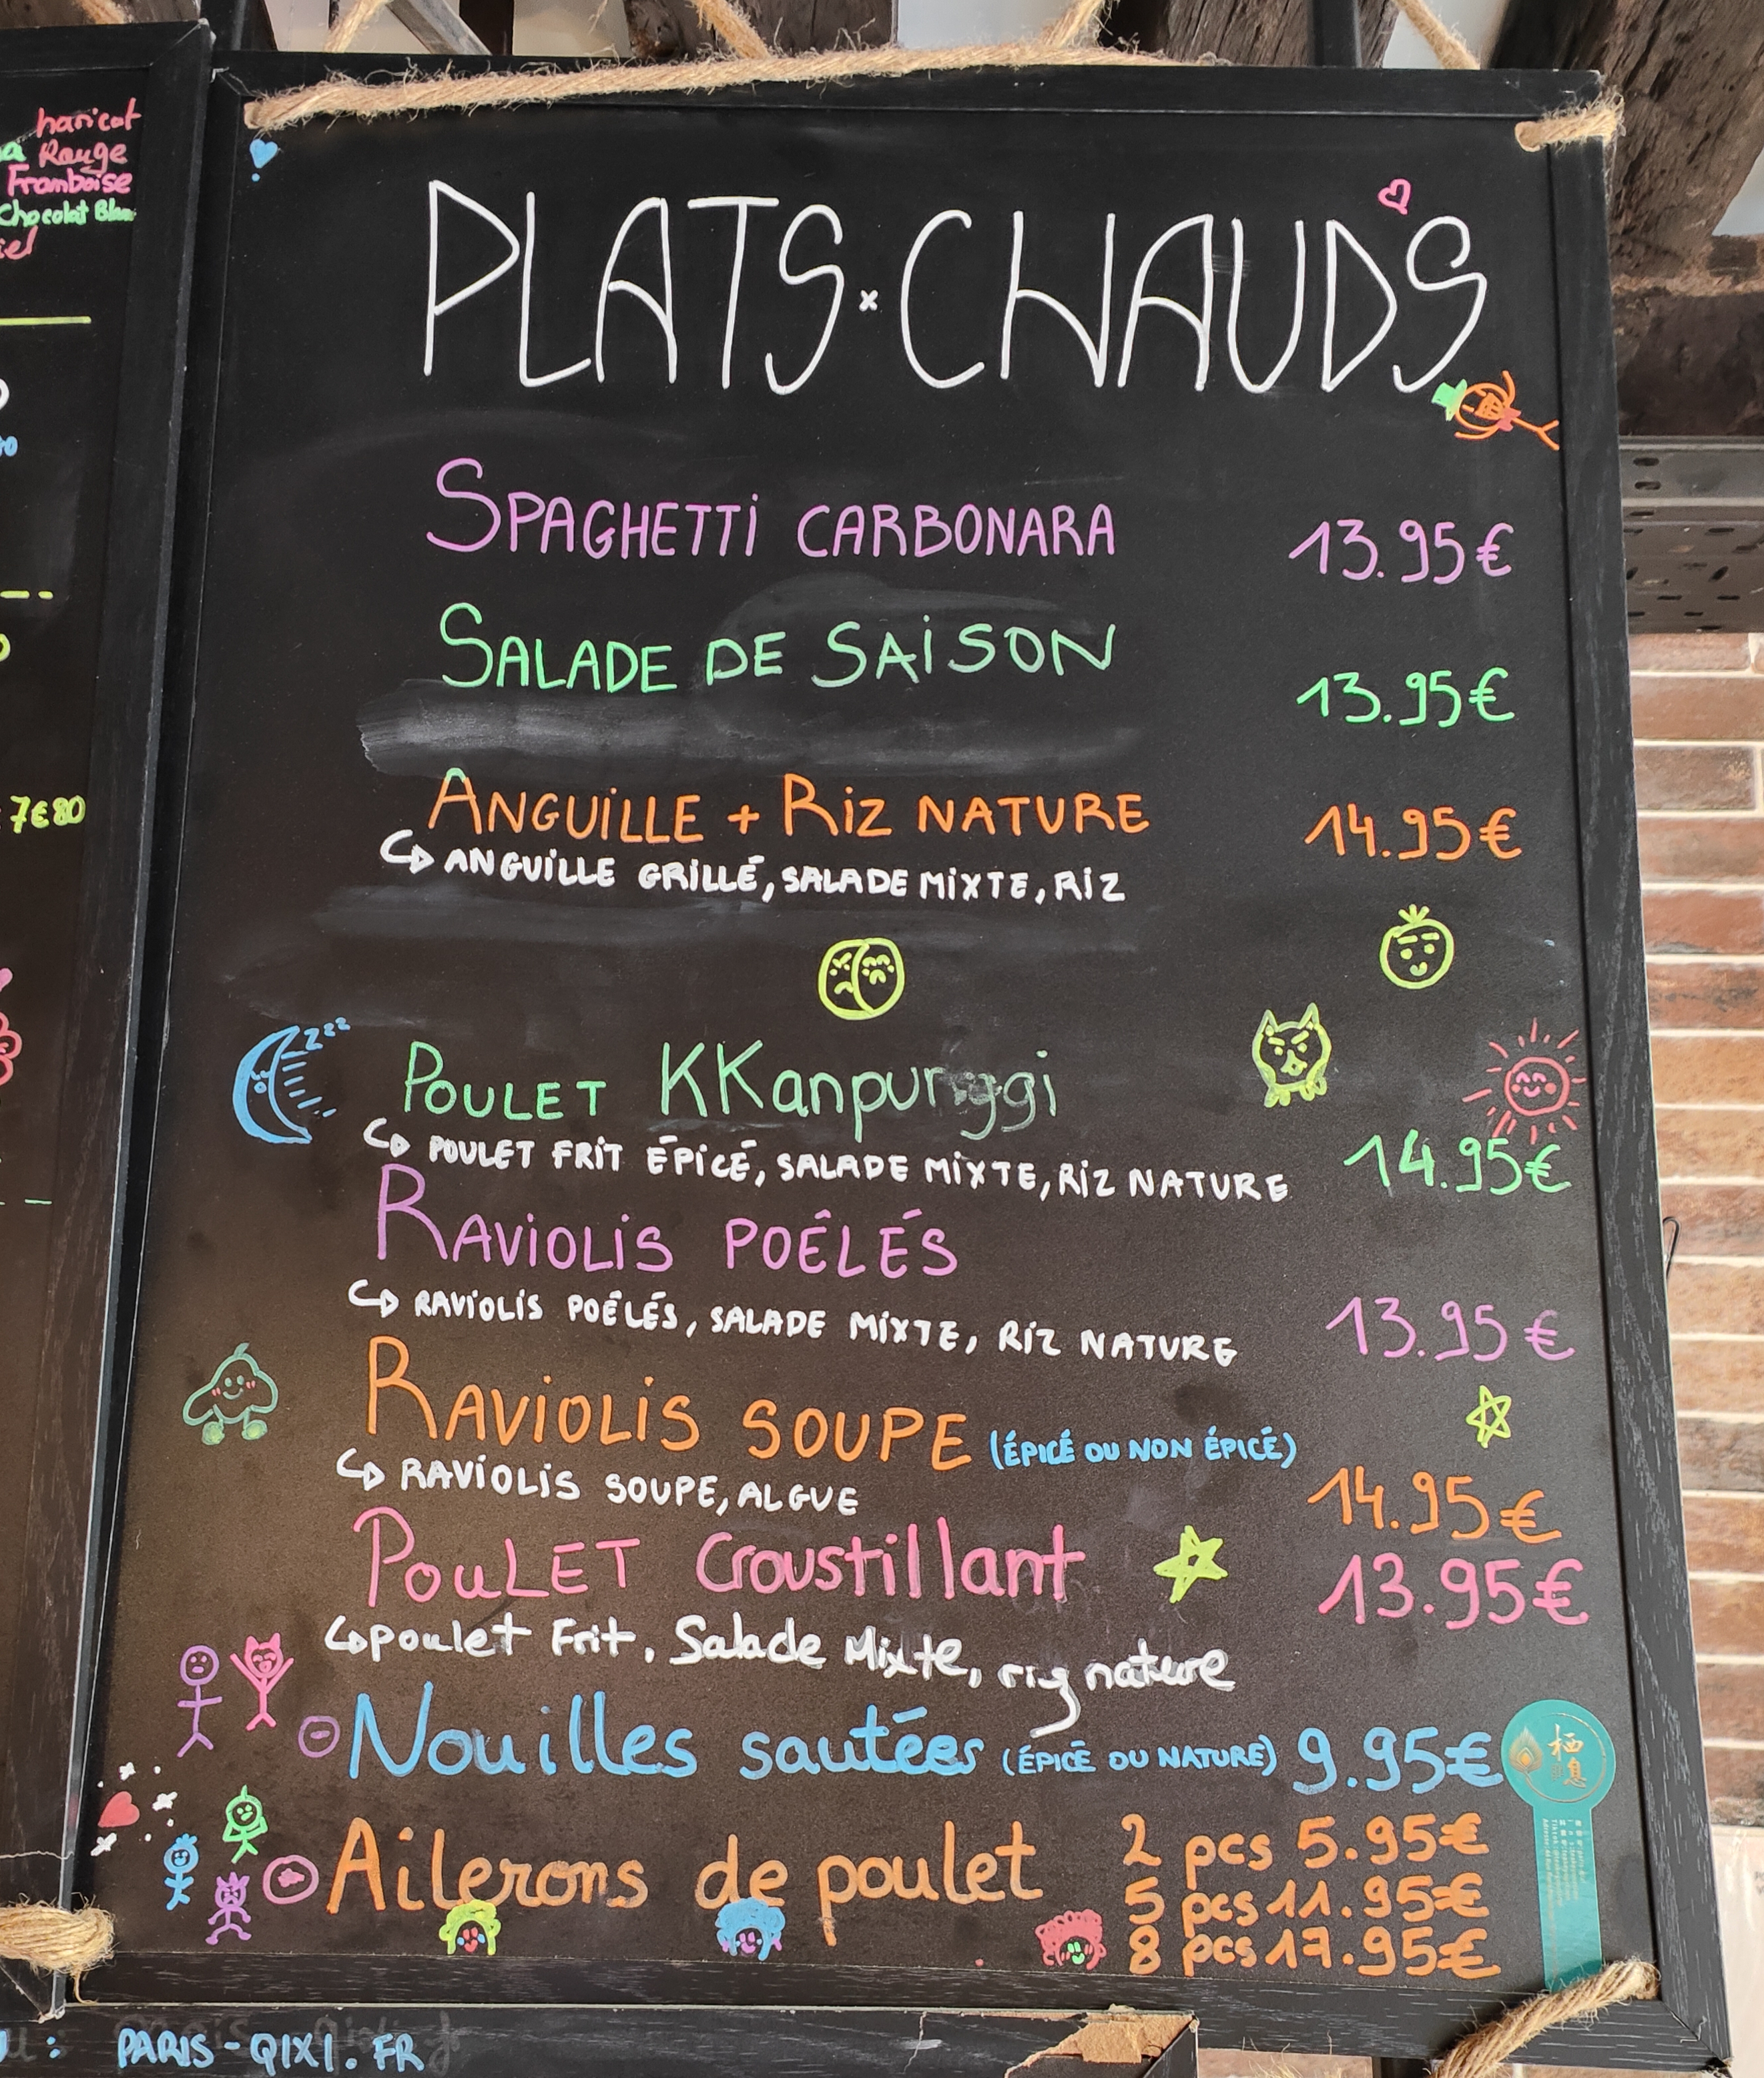 haricot
Rouge
Framboise
Chocolat Blanc
7€80
PLATS x CHAUDS
SPAGHETTI CARBONARA 13.95€
SALADE DE SAISON 13.95€
ANGUILLE + RIZ NATURE 14.95€
ANGUILLE GRILLÉ, SALADE MIXTE, RIZ
zzz
POULET KKanpunggi
POULET FRIT ÉPICÉ, SALADE MIXTE, RIZ NATURE 14.95€
RAVIOLIS POÊLÉS
RAVIOLIS POÊLÉS, SALADE MIXTE, RIZ NATURE 13.95€
RAVIOLIS SOUPE (ÉPICÉ OU NON ÉPICÉ)
RAVIOLIS SOUPE, ALGUE 14.95€
POULET Croustillant 13.95€
poulet Frit, Salade Mixte, riz nature
Nouilles sautées (ÉPICÉ OU NATURE) 9.95€
栖息
Ailerons de poulet 2 pcs 5.95€
5 pcs 11.95€
8 pcs 17.95€
: PARIS-QIXI.FR